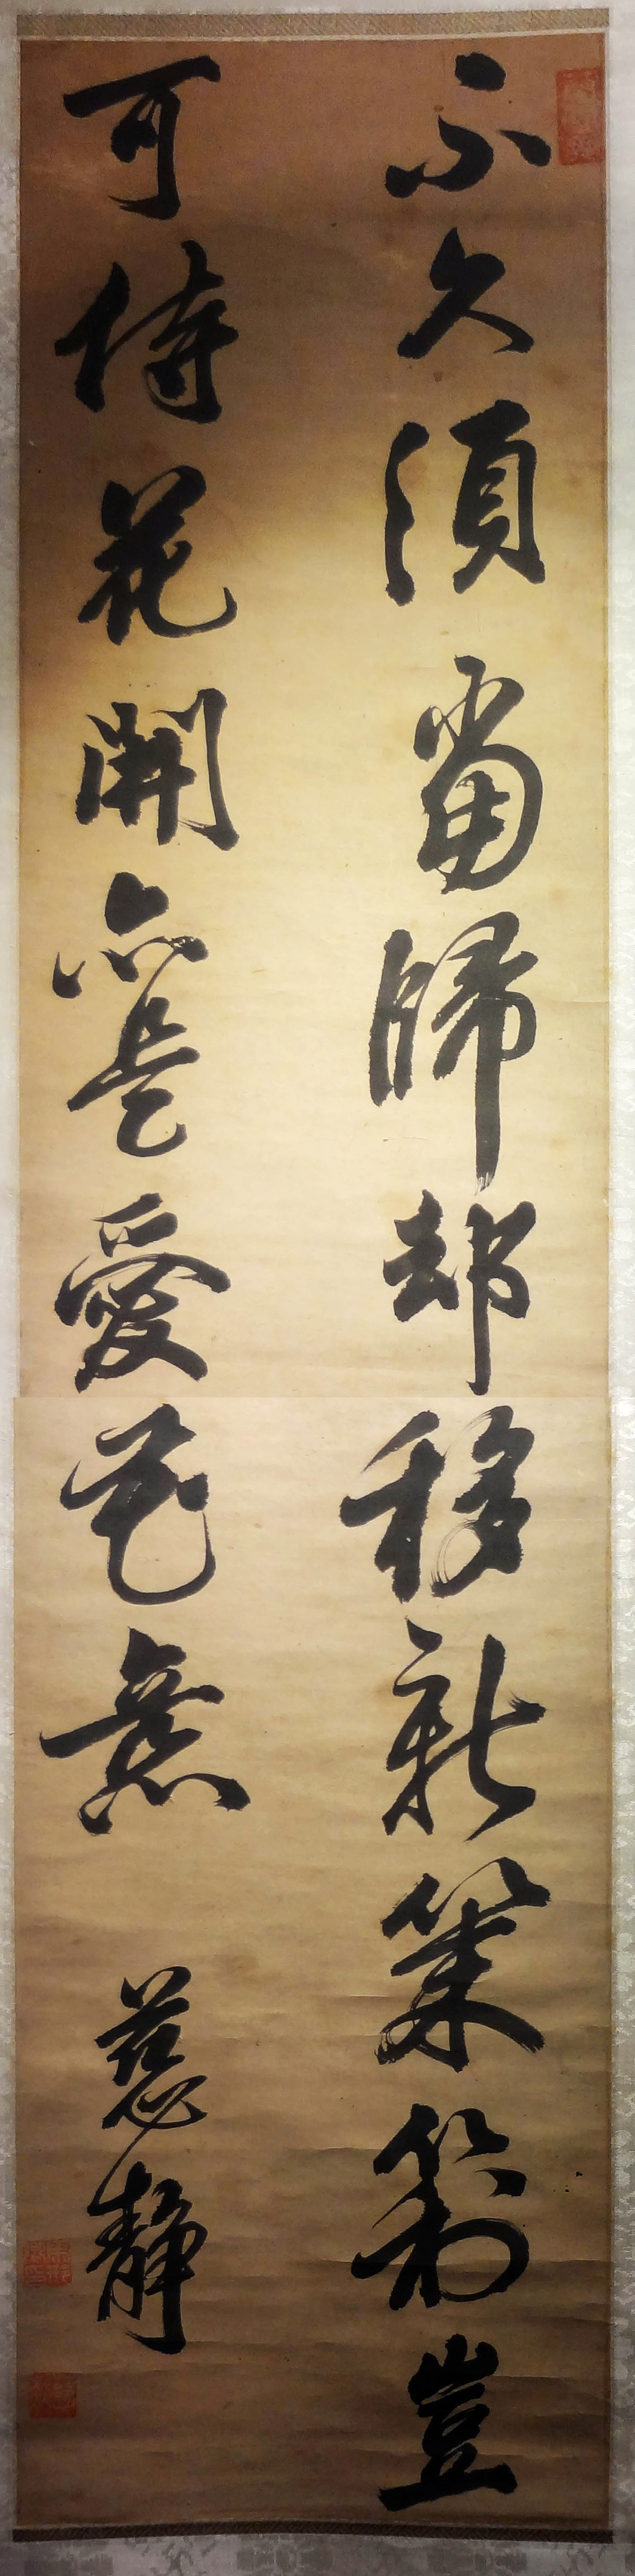 不久須當歸却移新築豈
可待花開亦是愛花意
慈靜